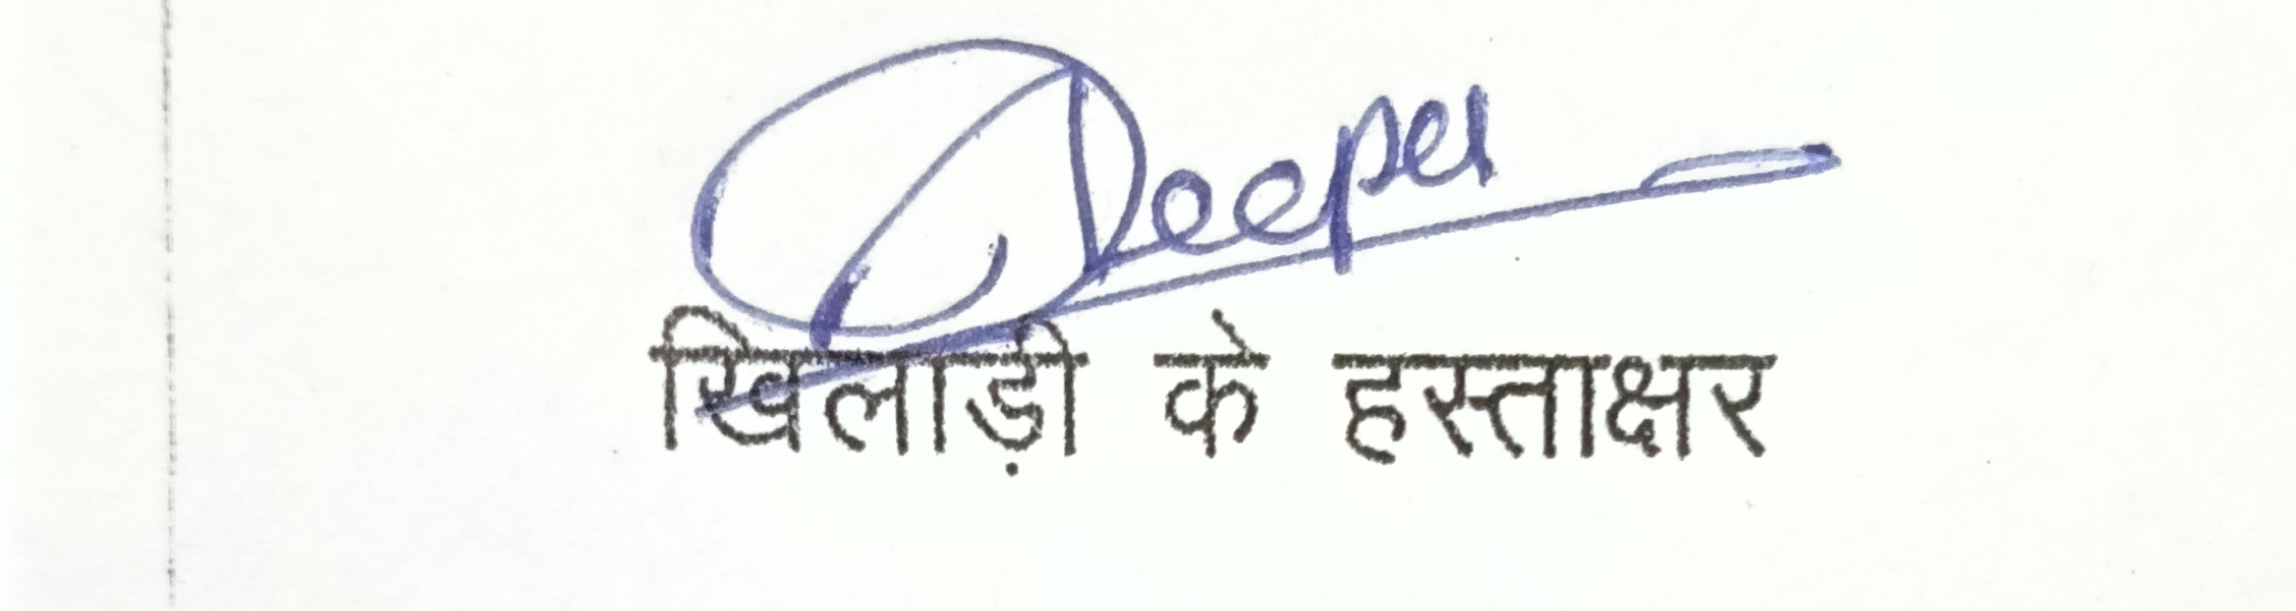 Deepa
खिलाड़ी के हस्ताक्षर